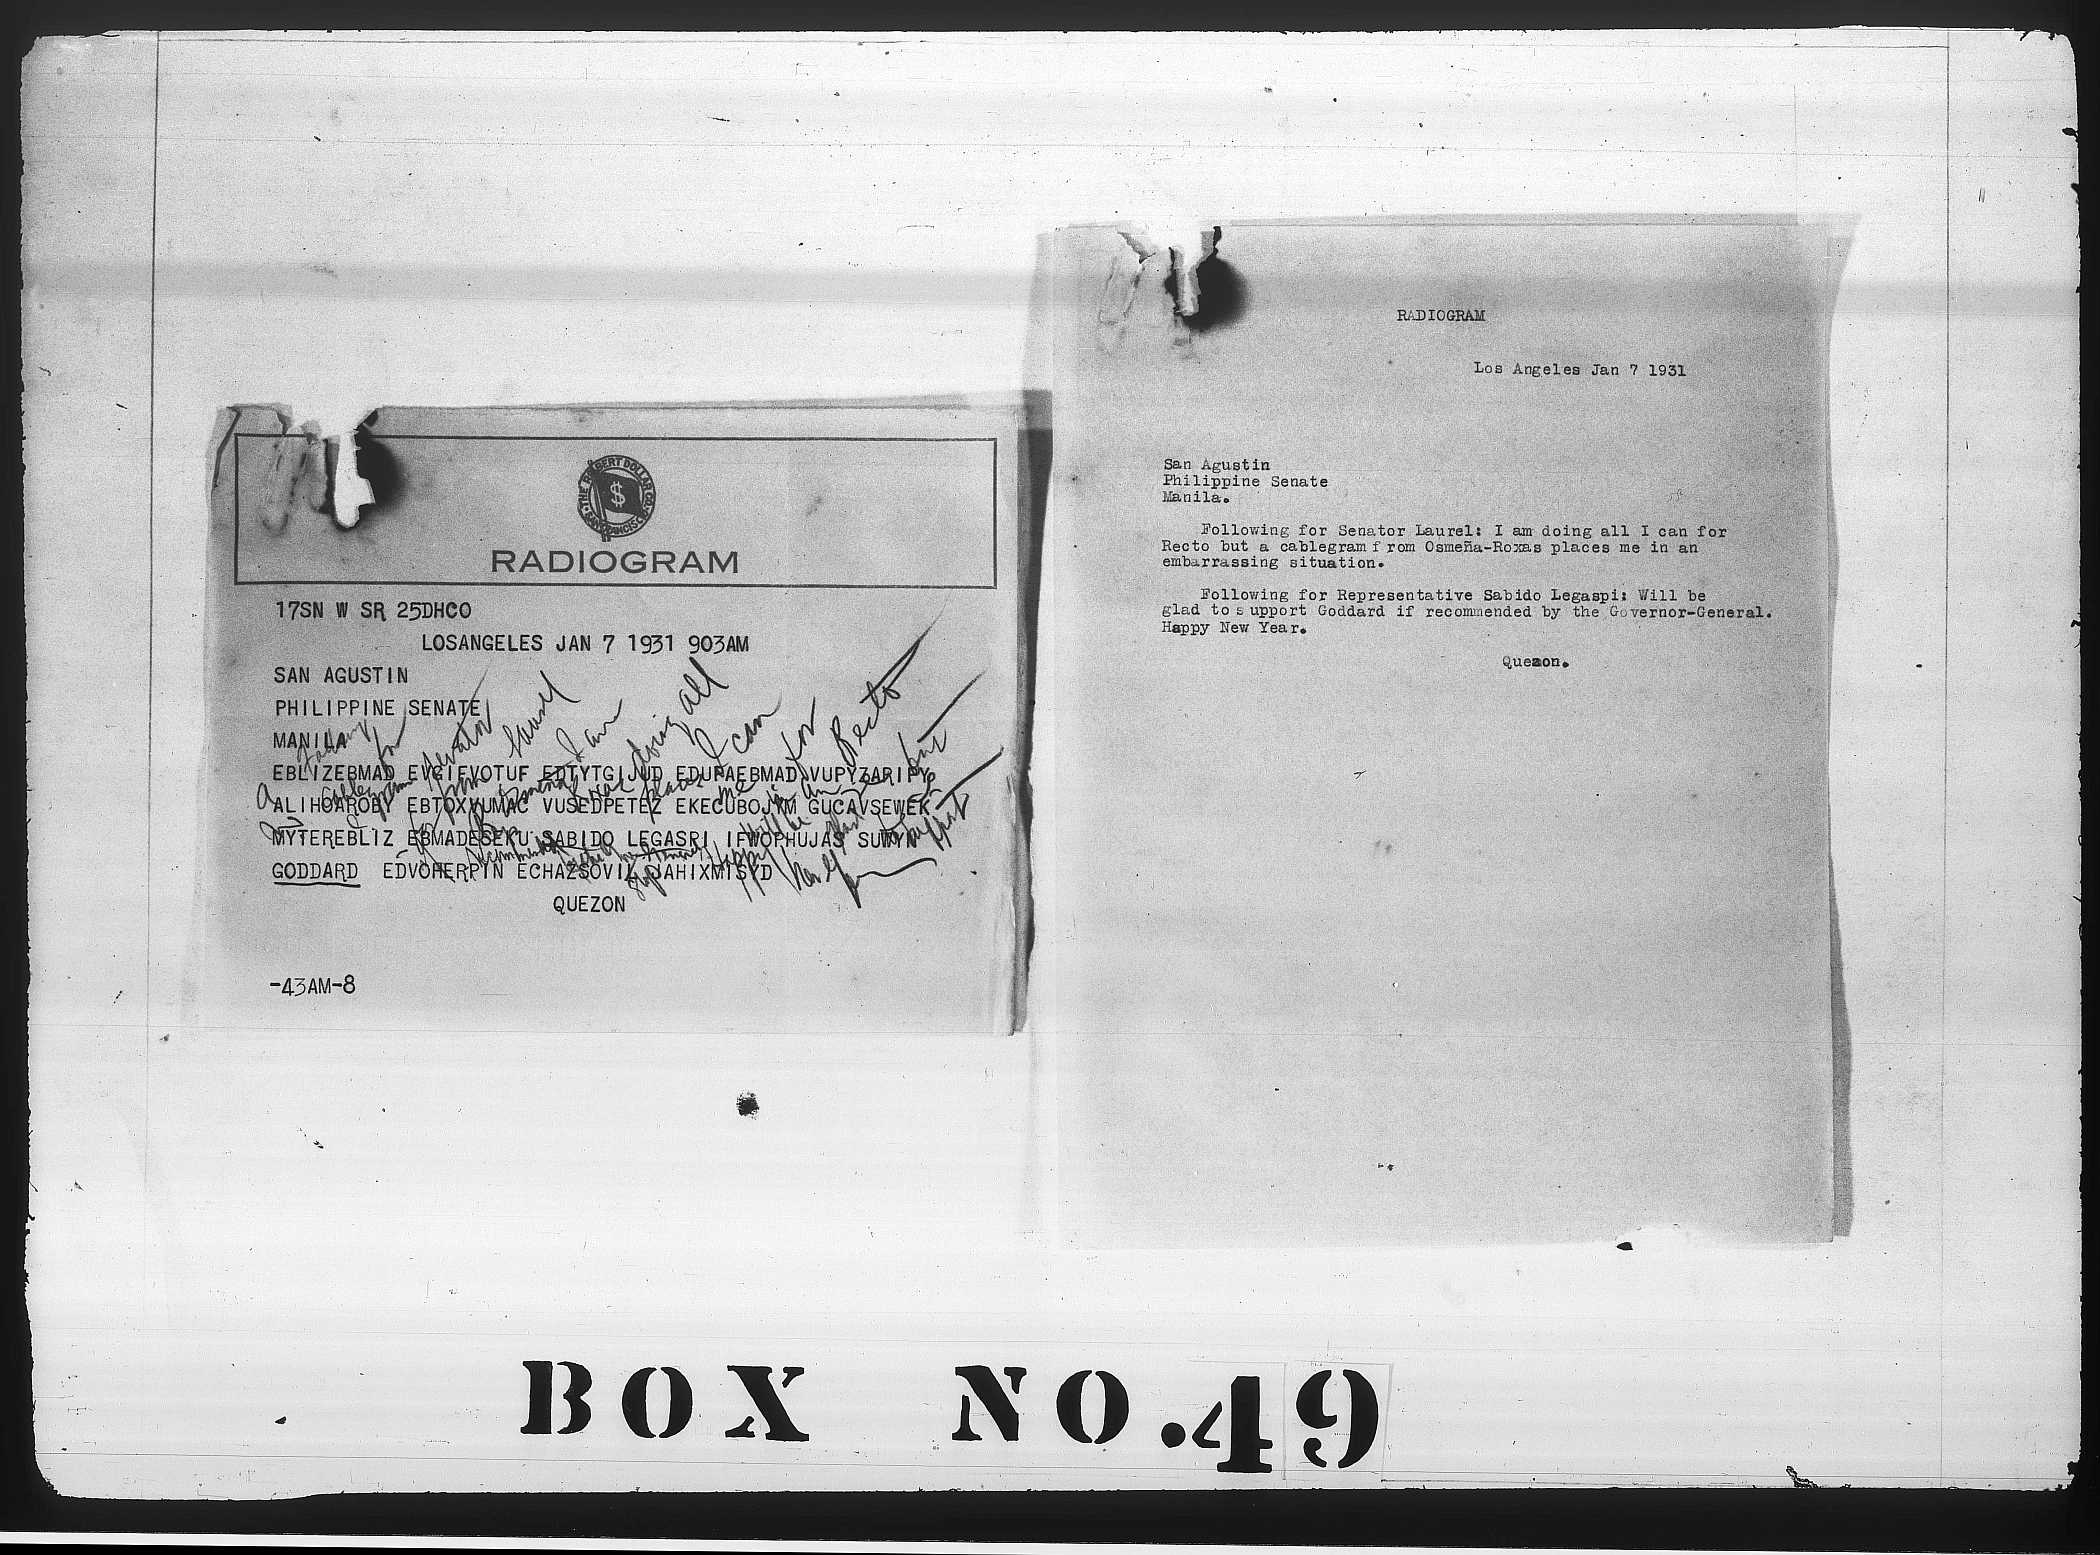 THE ROBERT DOLLAR CO.
SAN FRANCISCO
$
RADIOGRAM
17SN W SR 25DHCO
LOSANGELES JAN 7 1931 903AM
SAN AGUSTIN
PHILIPPINE SENATE
MANILA
EBLIZEBMAD EVGIFVOTUF EDTYTGIJUD EDUPAEBMAD VUPYZARIPY
ALIHOAROBY EBTOXVUMAC VUSEDPETEZ EKECUBOJYM GUCAVSEWEK
MYTEREBLIZ EBMADESEKU SABIDO LEGASRI IFWOPHUJAS SUWYN
GODDARD EDVOHERPIN ECHAZSOVIL JAHIXMISYD
QUEZON
-43AM-8
for Senator Laurel
I am doing all I can for Recto but
a cablegram from Osmeña Roxas places me in an
support
recommended
Happy
RADIOGRAM
Los Angeles Jan 7 1931
San Agustin
Philippine Senate
Manila.
Following for Senator Laurel: I am doing all I can for
Recto but a cablegram f rom Osmeña-Roxas places me in an
embarrassing situation.
Following for Representative Sabido Legaspi: Will be
glad to s upport Goddard if recommended by the Governor-General.
Happy New Year.
Quezon.
BOX NO. 49